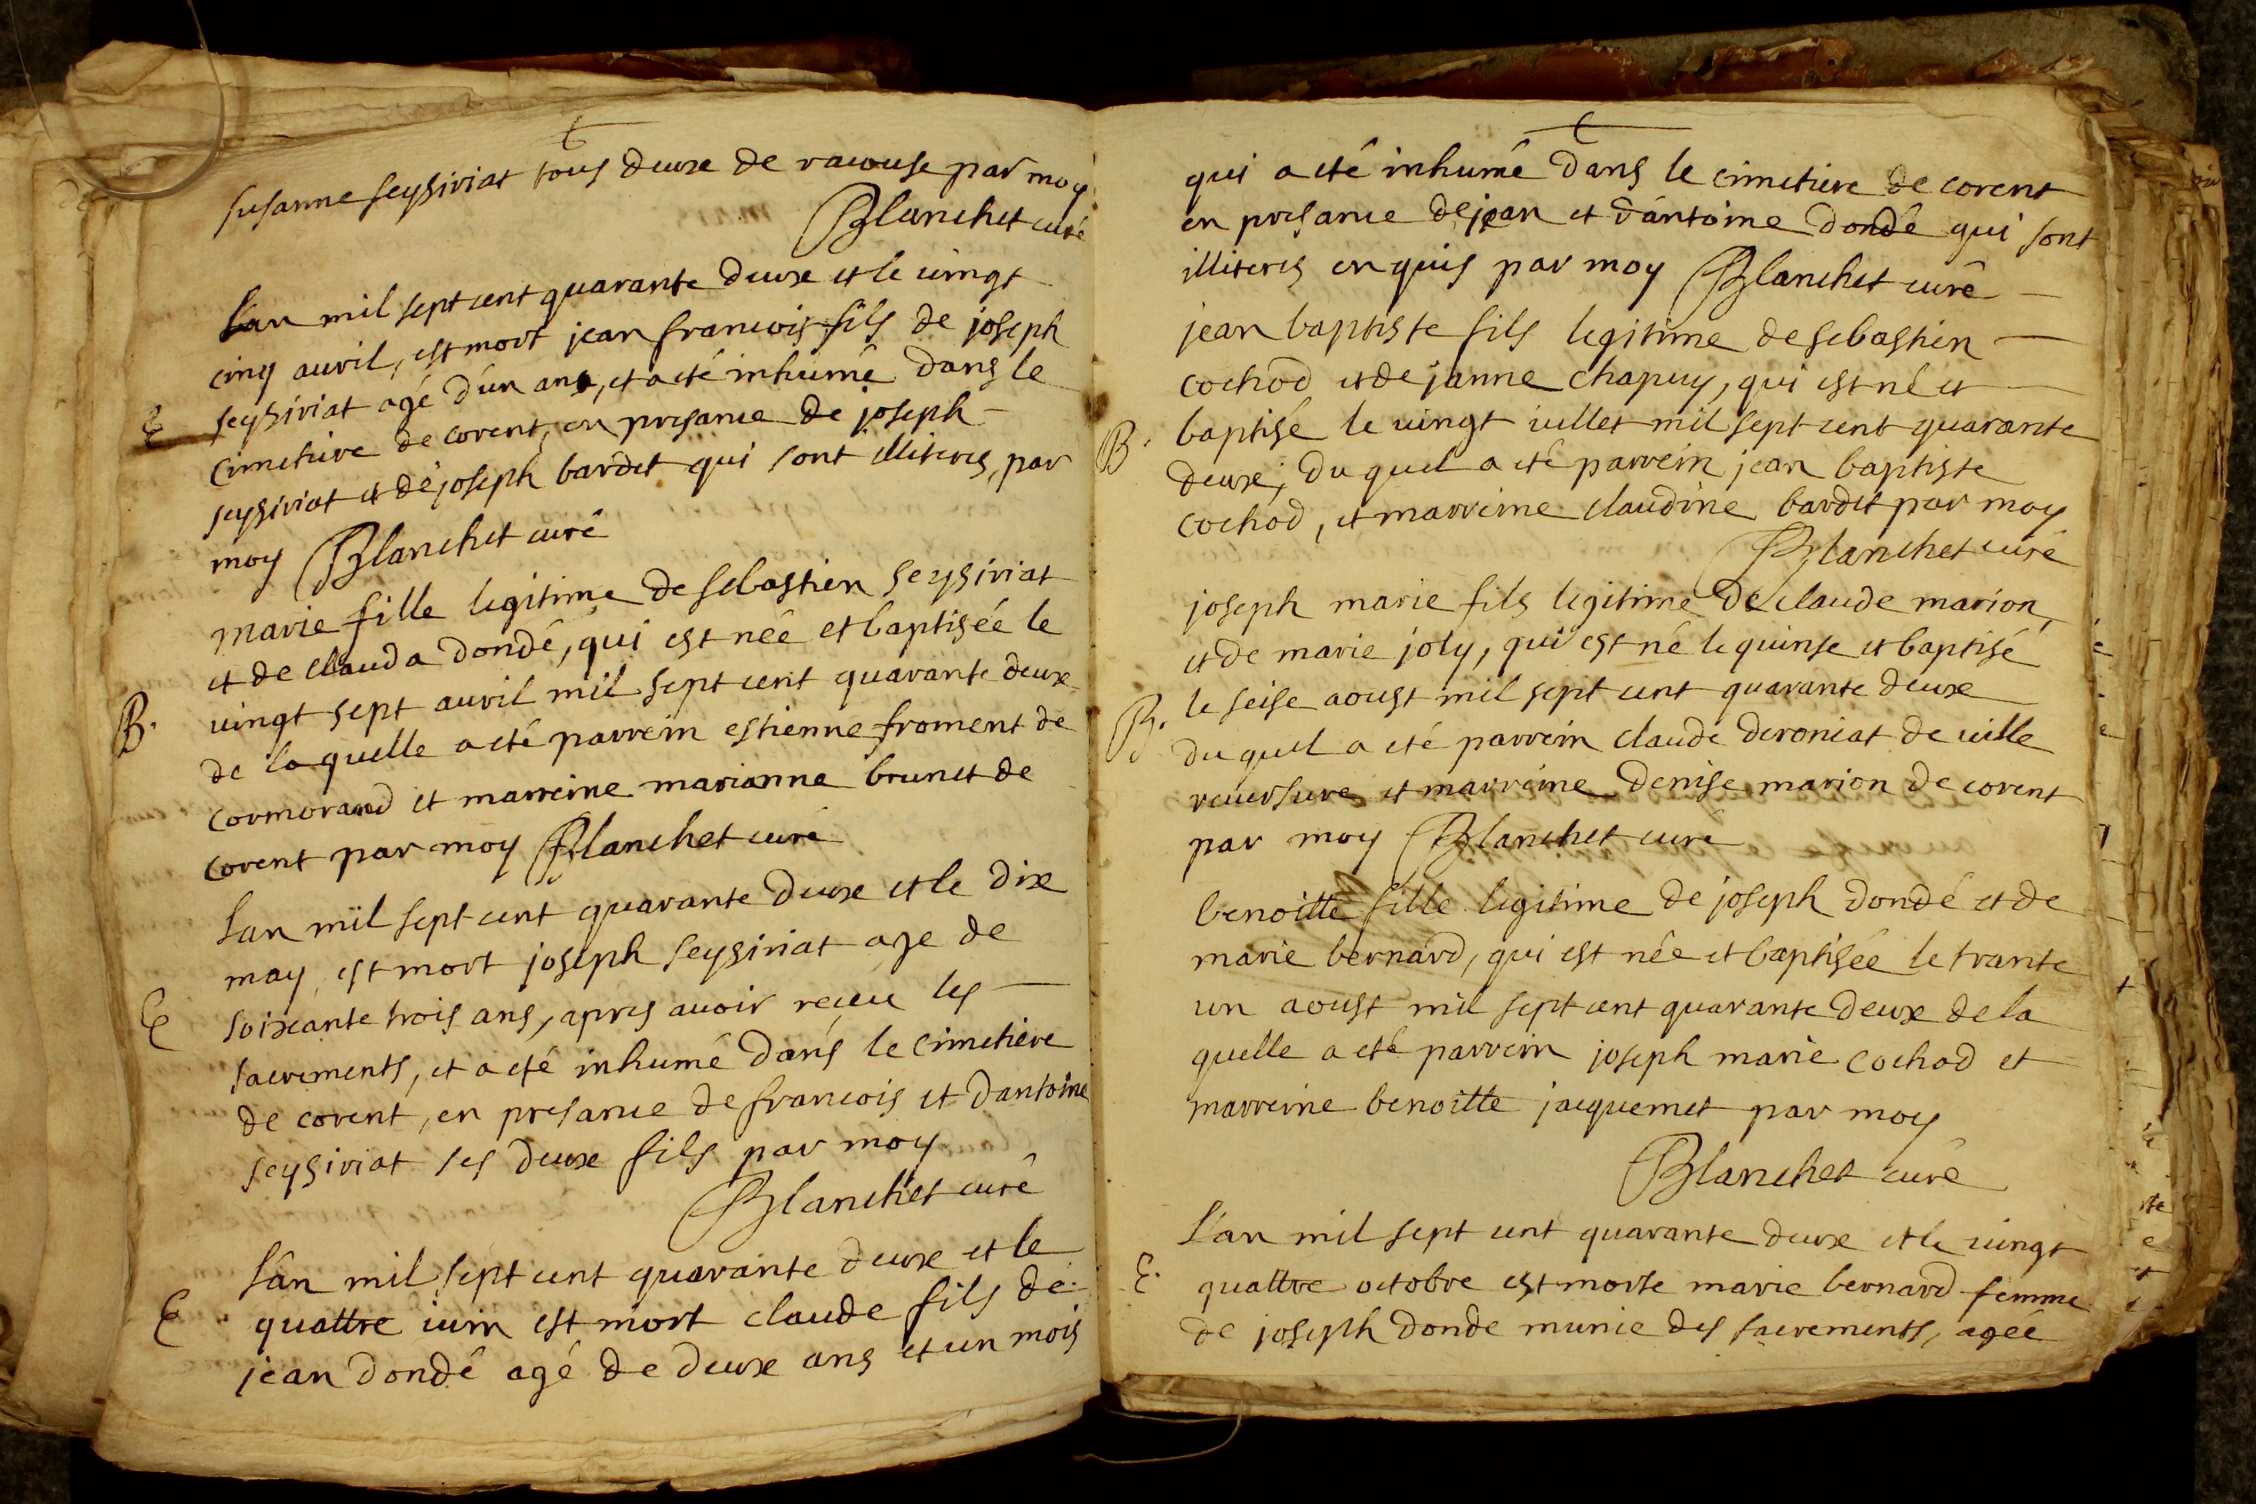 susanne seysiriat tous deuxe de racouse par moy
Blanchet curé
Lan mil sept cent quarante deuxe et le vingt
cinq auvril, est mort jean francois fils de joseph
seysiriat agé d'un ans, et a eté inhumé dans le
E
cimetiere de corent, en presance de joseph
seysiriat et de joseph bardet qui sont illiteres, par
moy Blanchet curé
marie fille legitime de sebastien seysiriat
et de clauda dondé, qui est née et baptisée le
B.
vingt sept auvril mil sept cent quarante deuxe
de la quelle a eté parrein estienne froment de
cormorand et marreine marianne brunet de
corent par moy Blanchet curé
Lan mil sept cent quarante deuxe et le dixe
may est mort joseph seysiriat age de
E
soixante trois ans, apres auvoir receu les
sacrements, et a eté inhumé dans le cimetiere
de corent, en presance de francois et d'antoine
seysiriat ses deuxe fils par moy
Blanchet curé
L'an mil sept cent quarante deuxe et le
E
quattre iuin est mort claude fils de
jean dondé agé de deuxe ans et un mois
qui a eté inhumé dans le cimetiere de corent
en presance de jean et d'antoine dondé qui sont
illiteres enquis par moy Blanchet curé
jean baptiste fils legitime de sebastien
cochod et de janne chapuy, qui est né et
B.
baptisé le vingt iullet mil sept cent quarante
deuxe, du quel a eté parrein jean baptiste
cochod, et marreine claudine bardet par moy
Blanchet curé
joseph marie fils legitime de claude marion,
et de marie joly, qui est né le quinse et baptisé
B.
le seise aoust mil sept cent quarante deuxe
du quel a eté parrein claude deroniat de ville
reuersure et marreine denise marion de corent
par moy Blanchet curé
benoitte fille legitime de joseph dondé et de
marie bernard, qui est née et baptisée le trante
un aoust mil sept cent quarante deuxe de la
quelle a eté parrein joseph marie cochod et
marreine benoitte jacquemet par moy
Blanchet curé
L'an mil sept cent quarante deuxe et le vingt
E.
quattre octobre est morte marie bernard femme
de joseph donde munie des sacrements, agée